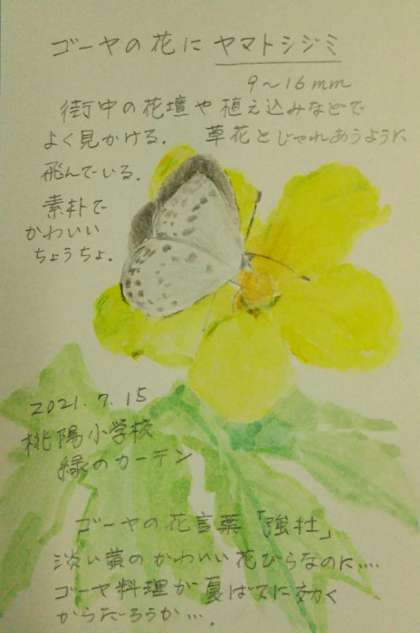 ゴーヤの花にヤマトシジミ
9~16mm
街中の花壇や植え込みなどで
よく見かける. 草花とじゃれあうように
飛んでいる.
素朴で
かわいい
ちょうちょ.
2021.7.15
桃陽小学校
緑のカーテン
ゴーヤの花言葉「強壮」
淡い黄のかわいい花びらなのに....
ゴーヤ料理が夏ばてに効く
からだろうか….